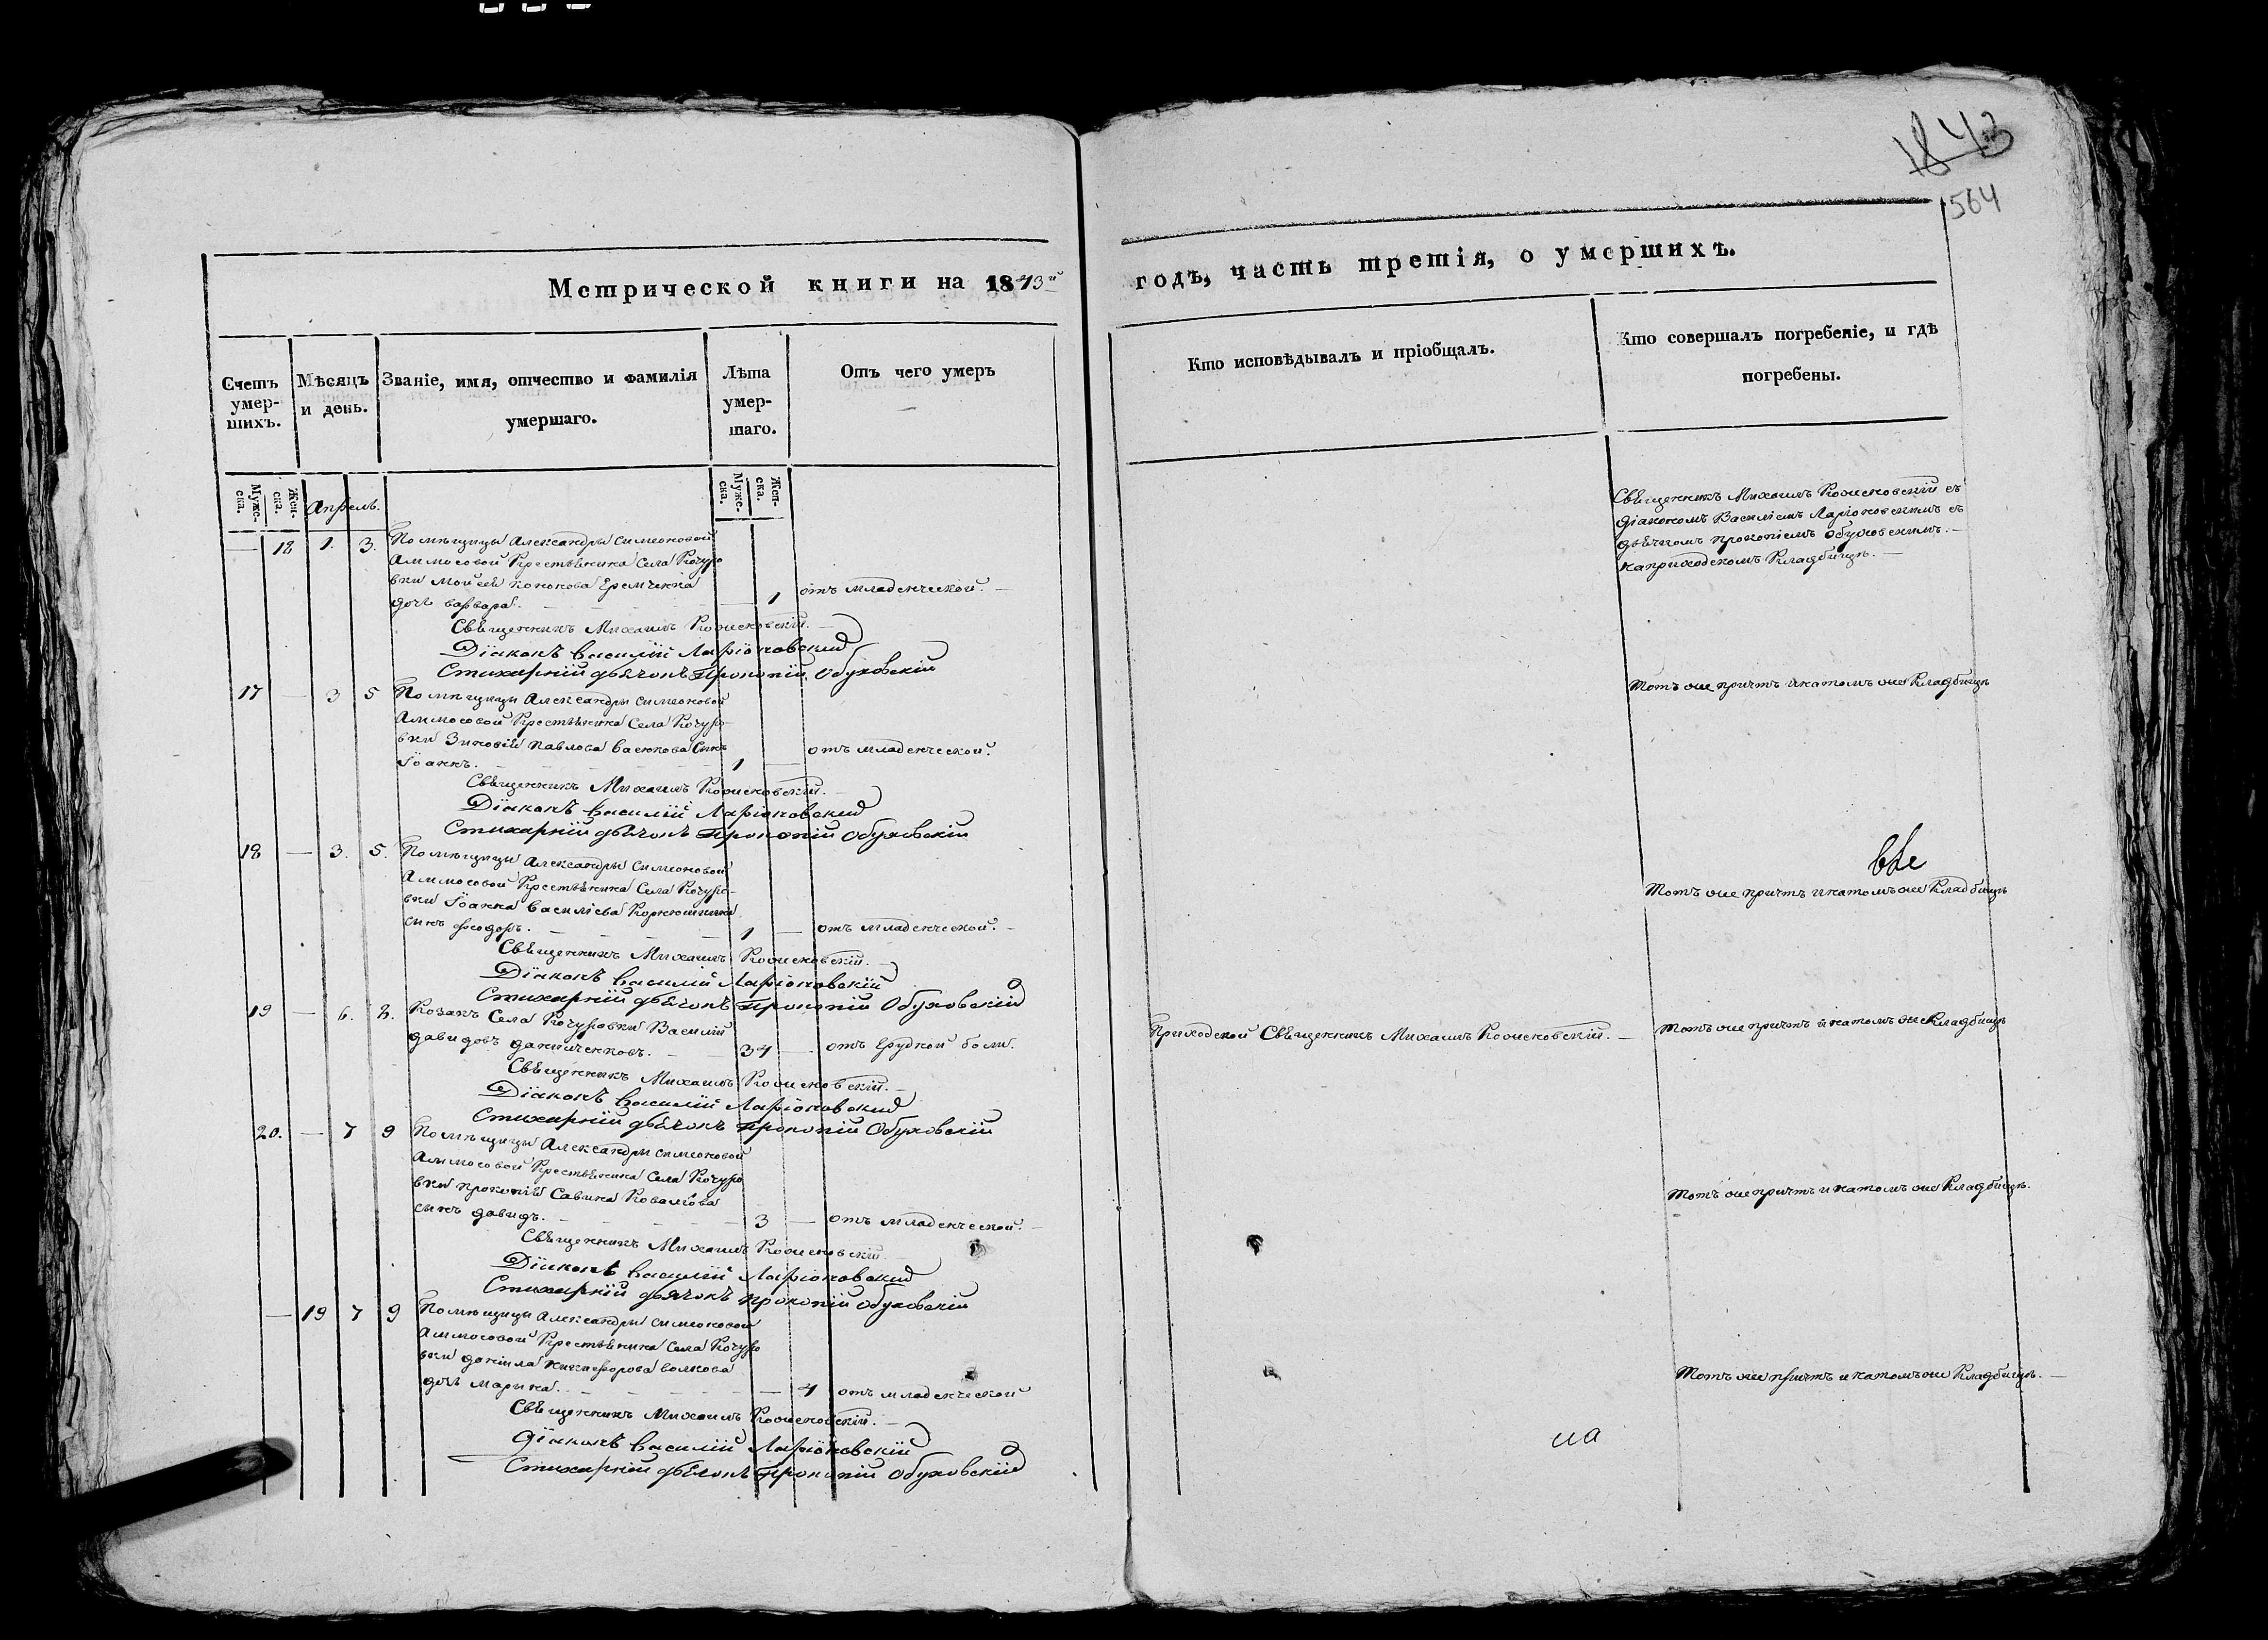 1843
564
Метрической книги на 1843й
годъ, часть третія, о умершихъ.
Счетъ умер-
шихъ.
Мѣсяцъ
и день.
Званіе, имя, отчество и фамилія
умершаго.
Лѣта
умер-
шаго.
Отъ чего умеръ
Кто исповѣдывалъ и пріобщалъ.
Кто совершалъ погребеніе, и гдѣ
погребены.
Муже-
ска.
Жен-
ска.
Апрель.
Муже-
ска.
Жен-
ска.
— 18 1. 3. Помѣщицы Александры Симеоновой
Аммосовой Крестьянина Села Кочуро
вки Мойсея Кононова Еремченка
дочь варвара. — 1 отъ младенческой. —
Священникъ Михаилъ
Діаконъ Василій Ларіоновский
Стихарній дьячокъ Прокопій Обуховскій
Священникъ Михаилъ съ
діакономъ Василіемъ Ларіоновскимъ съ
дьячкомъ прокопіемъ Обуховскимъ. —
на приходскомъ Кладбищѣ. —
17 — 3 5 Помѣщицы Александры Симеоновой
Аммосовой Крестьянина Села Кочуро-
вки Зиновія Павлова Васюкова Сынъ
Іоаннъ. — 1 — отъ младенческой.
Священникъ Михаилъ
Діаконъ Василій Ларіоновский
Стихарній дьячокъ Прокопій Обуховскій
Тотъ же причтъ и на томъ же Кладбищѣ
18 — 3. 5. Помѣщицы Александры Симеоновой
Аммосовой Крестьянина Села Кочуро-
вки Іоанна Василіева
сынъ феодоръ. — 1 — отъ младенческой. —
Священникъ Михаилъ
Діаконъ Василій Ларіоновскій
Стихарній дьячокъ Прокопій Обуховскій
Тотъ же причтъ и на томъ же Кладбищѣ
19 — 6. 8. Козакъ Села Кочуровки Василій
давидовъ даниченковъ. — 34 — отъ Грудной боли.
Священникъ Михаилъ
Діаконъ Василій Ларіоновский
Стихарній дьячокъ Прокопій Обуховскій
Приходской Священникъ Михаилъ
Тотъ же причтъ и на томъ же Кладбищѣ
20. — 7 9 Помѣщицы Александры Симеоновой
Аммосовой Крестьянина Села Кочуро
вки прокопія Савина Ковалiова
сынъ давидъ. — 3 — отъ младенческой. —
Священникъ Михаилъ
Діаконъ Василій Ларіоновский
Стихарній дьячокъ Прокопій Обуховскій
Тотъ же причтъ и на томъ же Кладбищѣ.
— 19 7 9 Помѣщицы Александры Симеоновой
Аммосовой Крестьянина Села Кочуро
вки даніила никифорова волкова
дочь марына. — 4 отъ младенческой
Священникъ Михаилъ
Діаконъ Василій Ларіоновскій
Стихарній дьячокъ Прокопій Обуховскій
Тотъ же причтъ и на томъ же Кладбищѣ. —